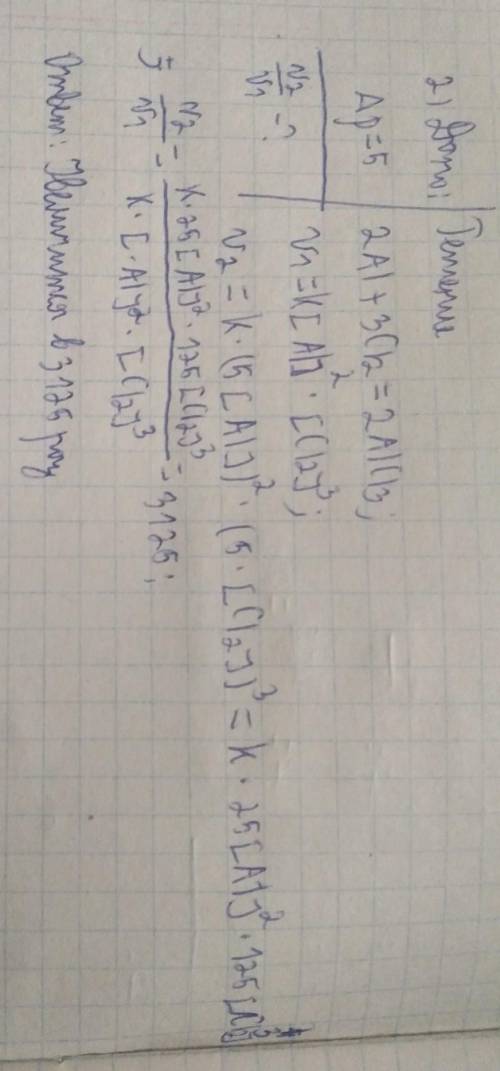 2) Дано:
Δp=5
v2/v1 - ?
Решение
2Al + 3Cl2 = 2AlCl3;
v1 = k[Al]² · [Cl2]³;
v2 = k · (5[Al])² · (5 · [Cl2])³ = k · 25[Al]² · 125[Cl2]³
v2/v1 = k · 25[Al]² · 125[Cl2]³ / k · [Al]² · [Cl2]³ = 3125;
Ответ: Увеличится в 3125 раз